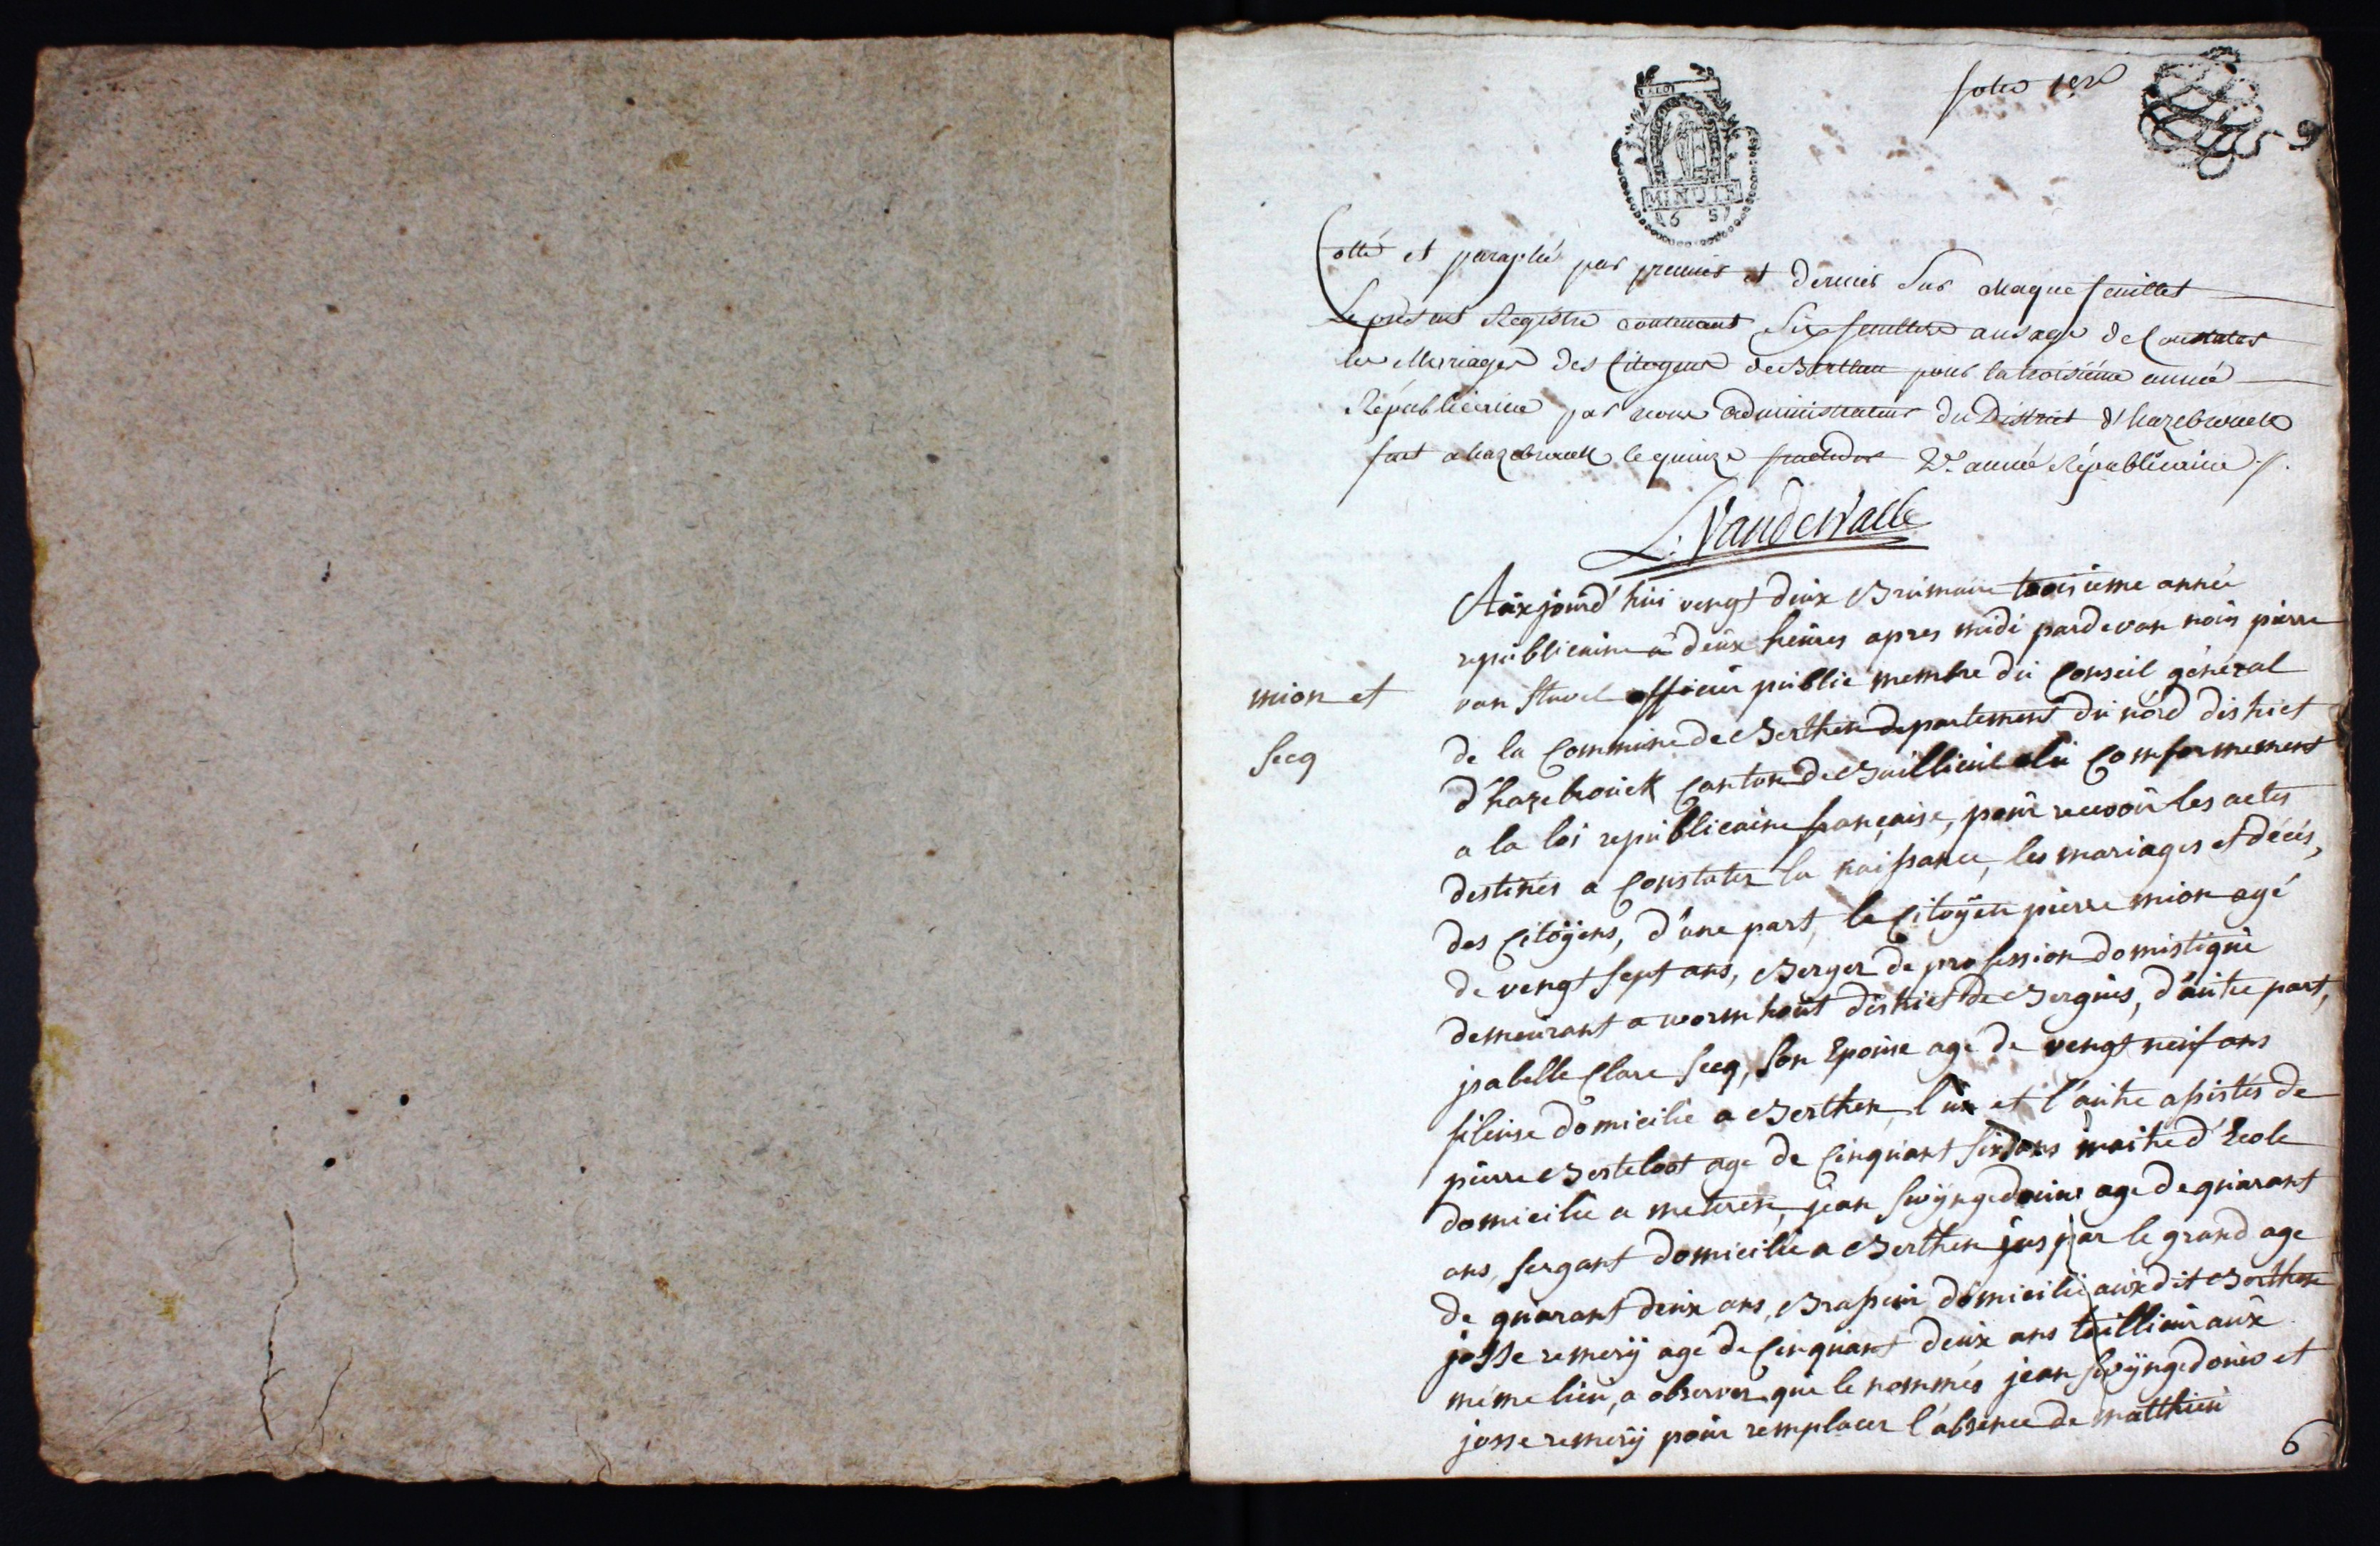 folio 1er
LA LOI
MINUTE
Cotté et paraphé par premier et dernier sur chaque feuillet
Le présent Registre contenant six feuilles a usage de Constater
les Mariages des Citoyens de Berthen pour la troisième année
Républicaine par nous administrateur du District d'hazebrouck
fait a hazebrouck le quinze fructidor 2e année Républicaine
L. VandeWalle
Aüxjourd'hüi vengt deüx Brümaire troisieme année
repüblicaine a deüx heüres apres midi pardevan noüs pierre
mion et
van Stavel officier püblic membre dü Conseil géneral
secq
de la Commüne de Berthen departement dü nörd district
d'hazebroück Canton de Baillieül elü Comformement
a la loi repüblicaine française, poür recevoir les actes
destinés a Constater la naissance, les mariages et décés,
des Citoÿens, d'üne part, le Citoÿen pierre mion agé
de vengt sept ans, Berger de profession domistiqüe
demeürant a wormhoüt district de Bergües, d'aütre part,
jsabelle Clare secq, son Epoüse agé de vengt neüf ans
fileüse domicilié a Berthen, l'ün et l'aütre assistés de
pierre Berteloot age de Cinqüant six ans maitre d'Ecole
domicilié a meteren, jean Swÿngedouw age de qüarant
ans, sergant domicilié a Berthen jaspar le grand age
de qüarant deüx ans, Brasseür domicilié aüxdit Berthen
josse remerÿ age de Cinqüant deüx ans taillieür aüx
méme lieü, a observer qüe le nommés jean Swÿngedouw et
josse remerÿ poür remplacer l'absence de matthieü
6